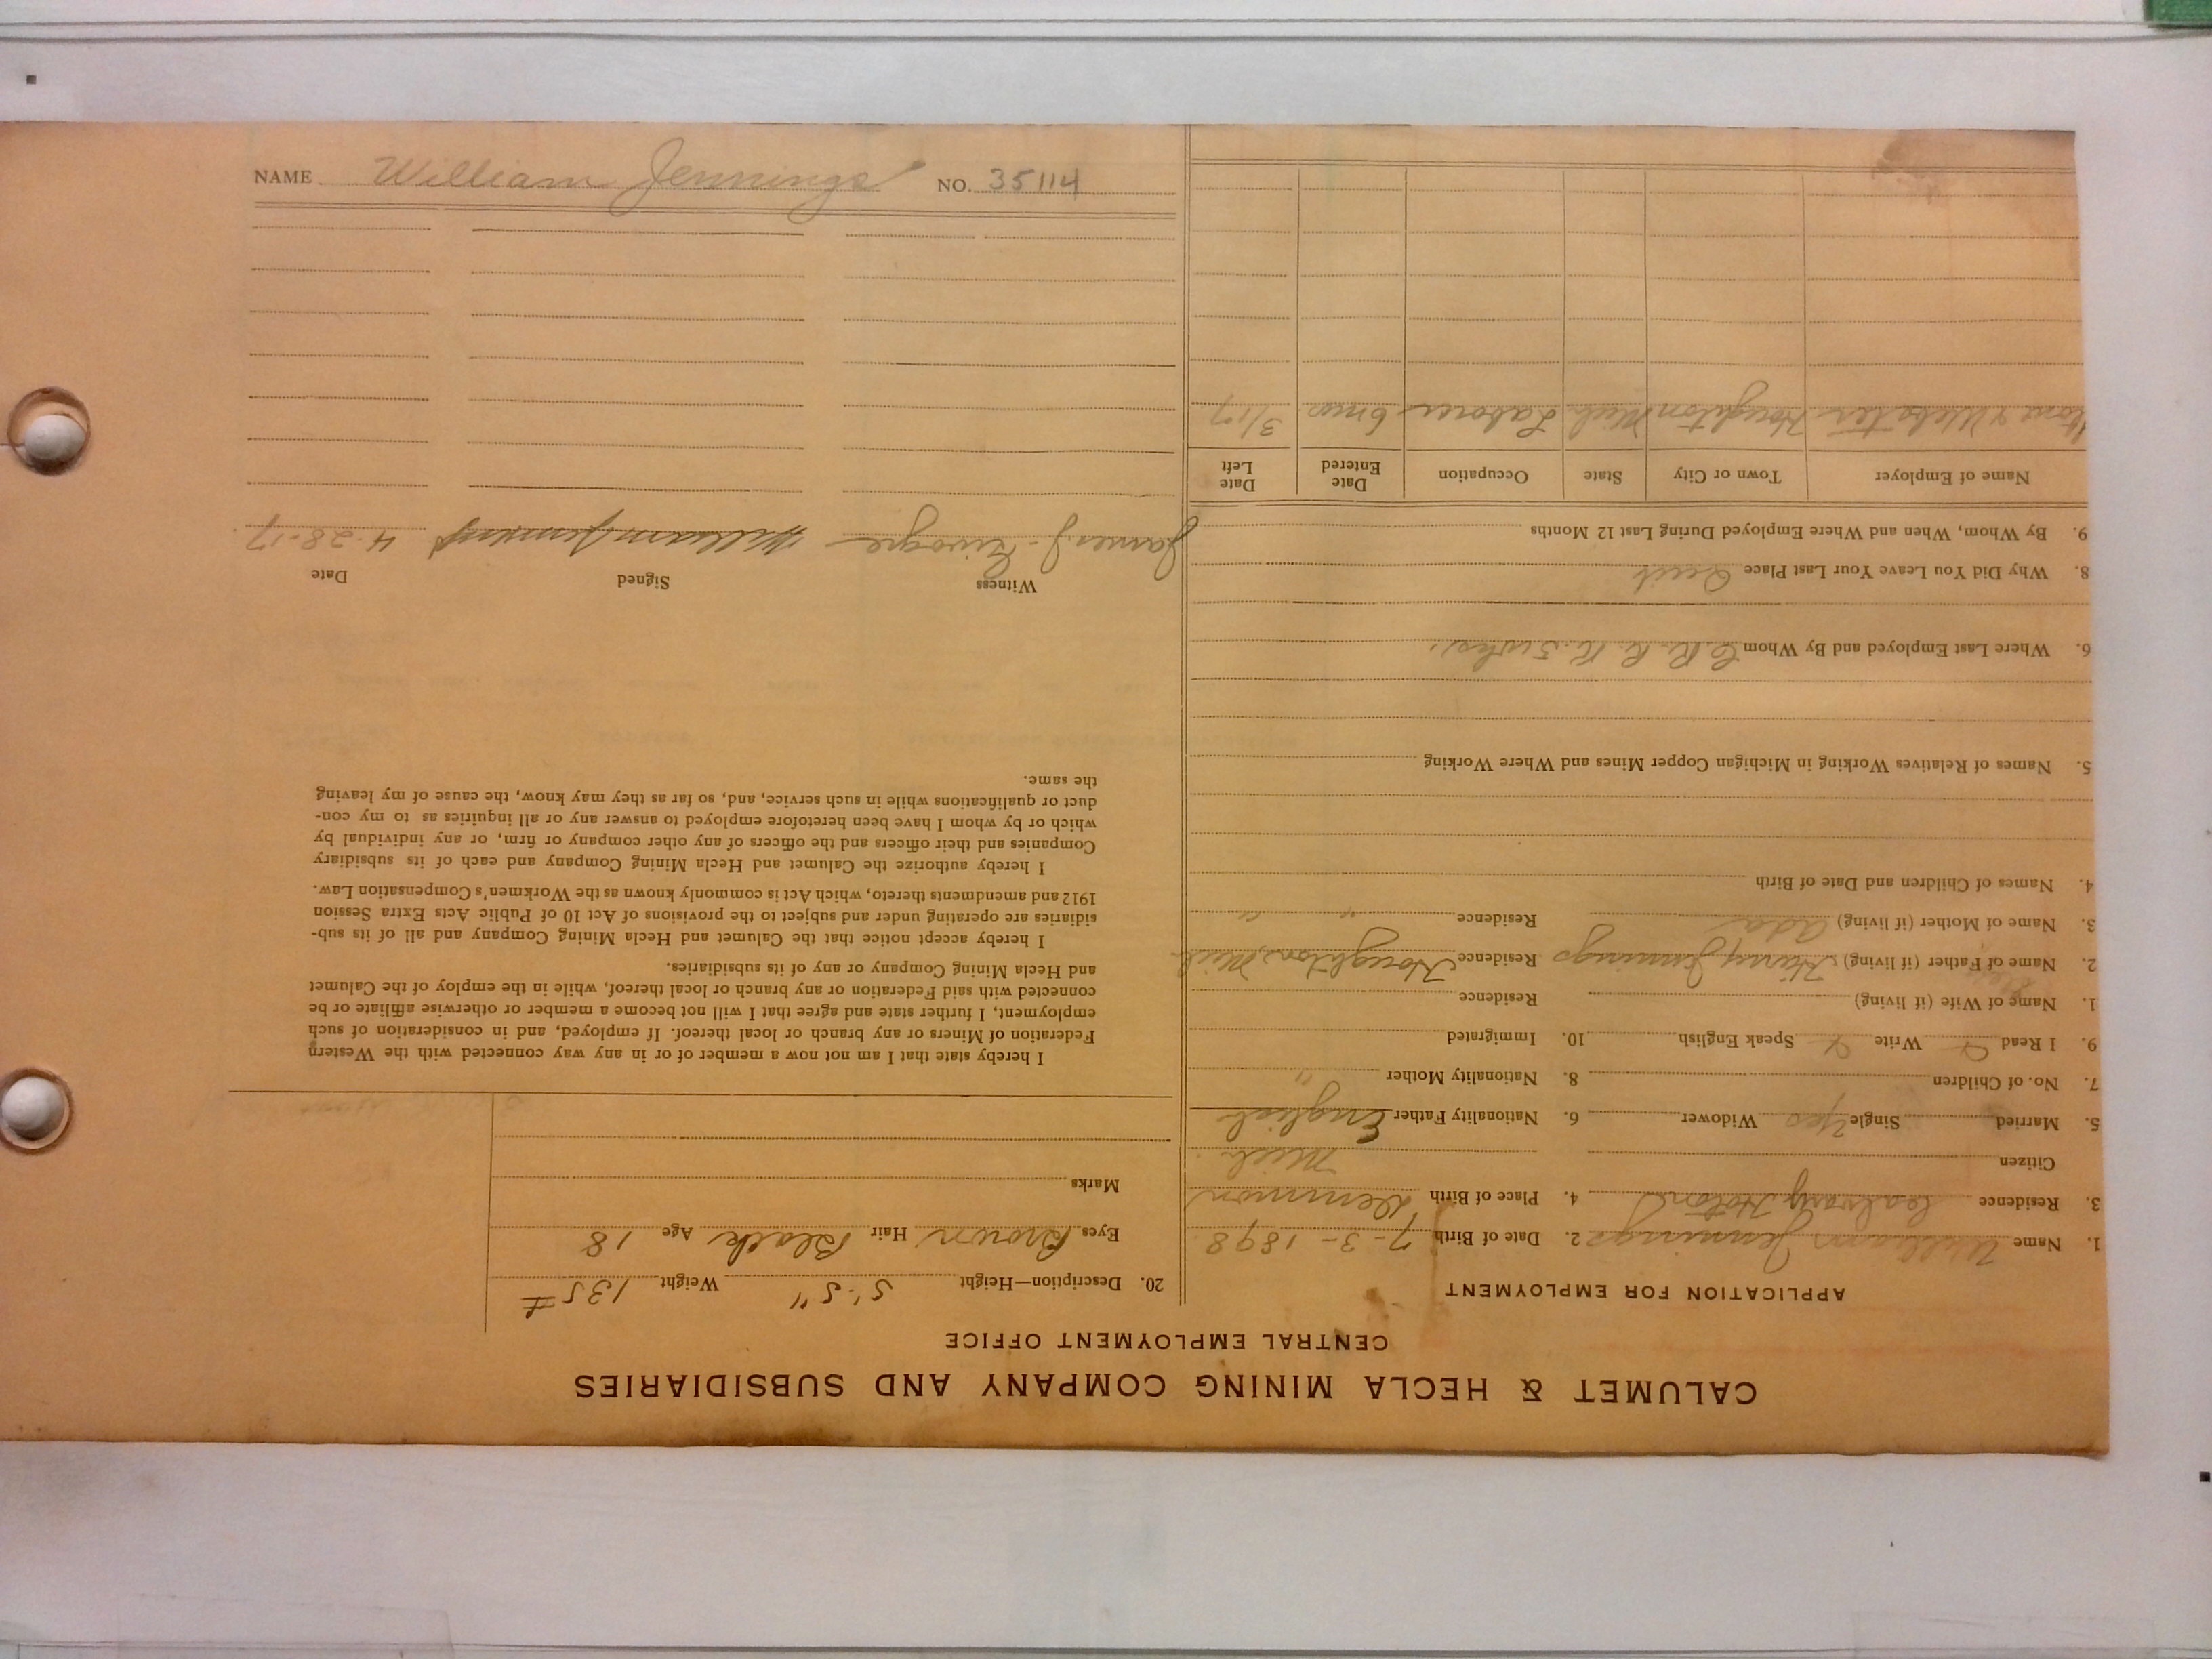 CALUMET & HECLA MINING COMPANY AND SUBSIDIARIES
CENTRAL EMPLOYMENT OFFICE
APPLICATION FOR EMPLOYMENT
1. Name William Jennings 2. Date of Birth 7-3-1898
3. Residence Houghton 4. Place of Birth Kennnon
Citizen Mich
5. Married Single Yes Widower 6. Nationality Father English
7. No. of Children 8. Nationality Mother "
9. I Read Write Speak English 10. Immigrated
1. Name of Wife (if living) Residence
2. Name of Father (if living) Harry Jennings Residence Houghton, Mich
3. Name of Mother (if living) Ada Residence " "
4. Names of Children and Date of Birth
5. Names of Relatives Working in Michigan Copper Mines and Where Working
6. Where Last Employed and By Whom C. R. R. R.
8. Why Did You Leave Your Last Place Quit
9. By Whom, When and Where Employed During Last 12 Months
Name of Employer Town or City State Occupation Date Entered Date Left
Stone & Webster Houghton Mich Laborer 6 mos 3/17
20. Description—Height 5'-5" Weight 135 #
Eyes Brown Hair Black Age 18
Marks
I hereby state that I am not now a member of or in any way connected with the Western
Federation of Miners or any branch or local thereof. If employed, and in consideration of such
employment, I further state and agree that I will not become a member or otherwise affiliate or be
connected with said Federation or any branch or local thereof, while in the employ of the Calumet
and Hecla Mining Company or any of its subsidiaries.
I hereby accept notice that the Calumet and Hecla Mining Company and all of its sub-
sidiaries are operating under and subject to the provisions of Act 10 of Public Acts Extra Session
1912 and amendments thereto, which Act is commonly known as the Workmen's Compensation Law.
I hereby authorize the Calumet and Hecla Mining Company and each of its subsidiary
Companies and their officers and the officers of any other company or firm, or any individual by
which or by whom I have been heretofore employed to answer any or all inquiries as to my con-
duct or qualifications while in such service, and, so far as they may know, the cause of my leaving
the same.
Witness Signed Date
James J. William Jennings 4-28-17
NAME William Jennings NO. 35114